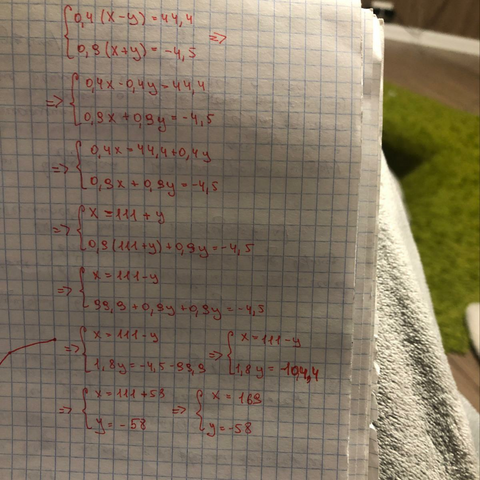 {0,4(x-y)=44,4
{0,9(x+y)=-4,5 =>
=> {0,4x-0,4y=44,4
{0,9x+0,9y=-4,5
=> {0,4x=44,4+0,4y
{0,9x+0,9y=-4,5
=> {x=111+y
{0,9(111+y)+0,9y=-4,5
=> {x=111-y
{99,9+0,9y+0,9y=-4,5
=> {x=111-y => {x=111-y
{1,8y=-4,5-99,9 {1,8y=-104,4
=> {x=111+58 => {x=169
{y=-58 {y=-58